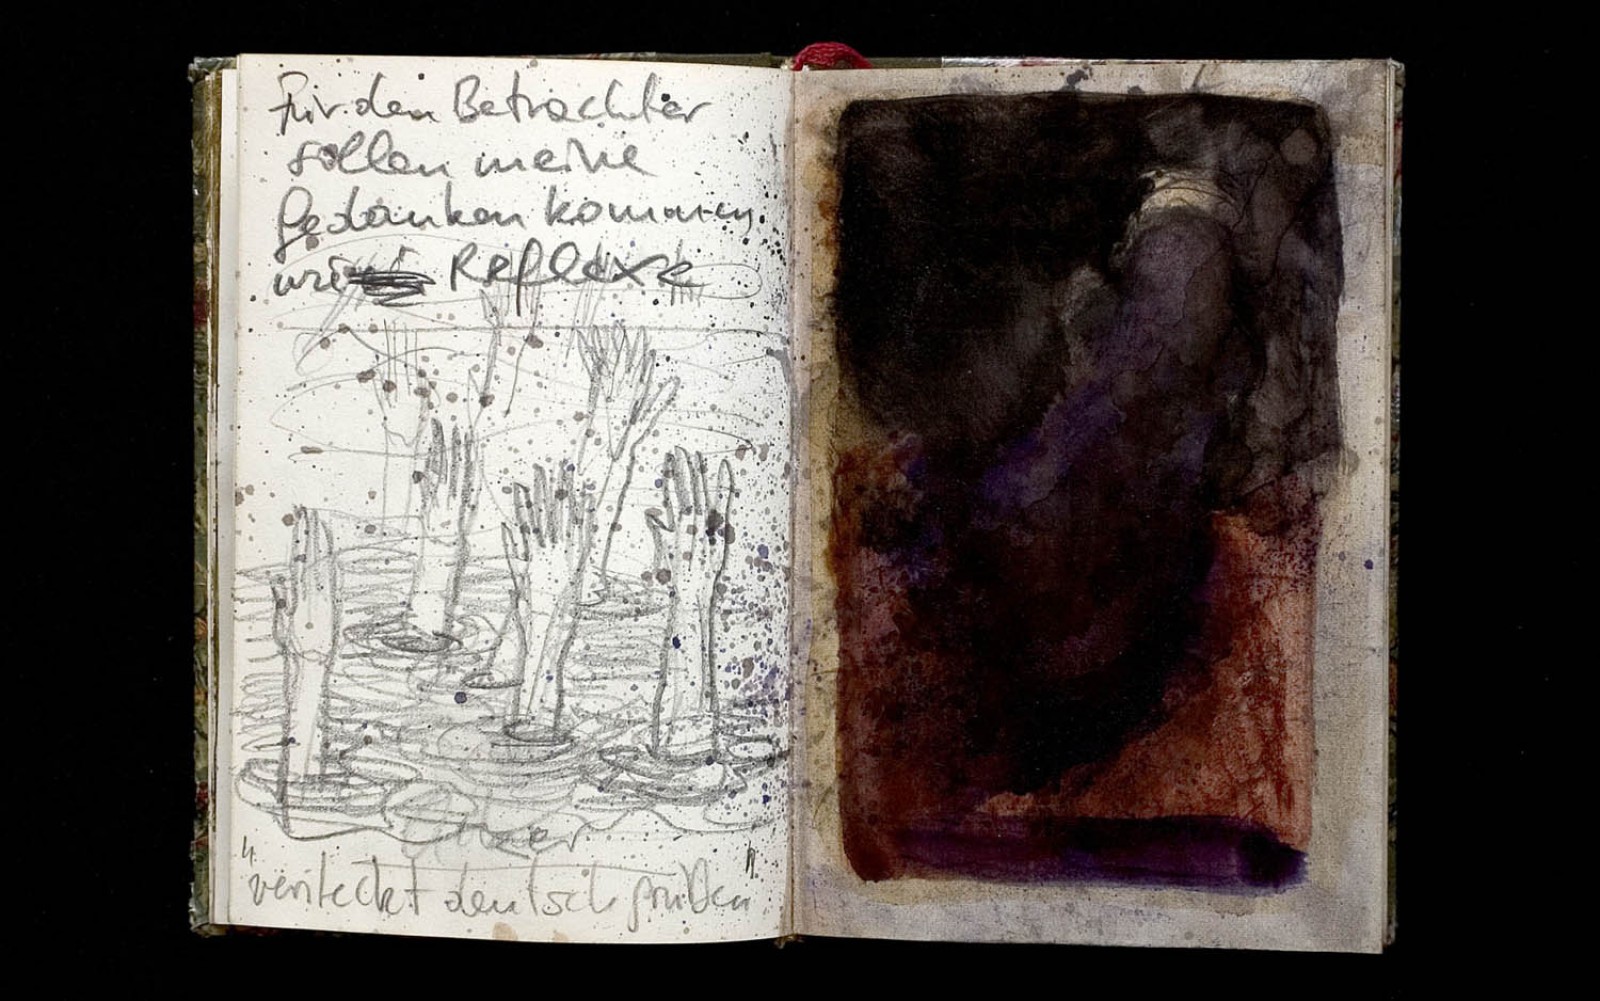 für den Betrachter
sollen meine
Gedanken kommen
wie Reflexe
"versteckt deutsch grüßen"